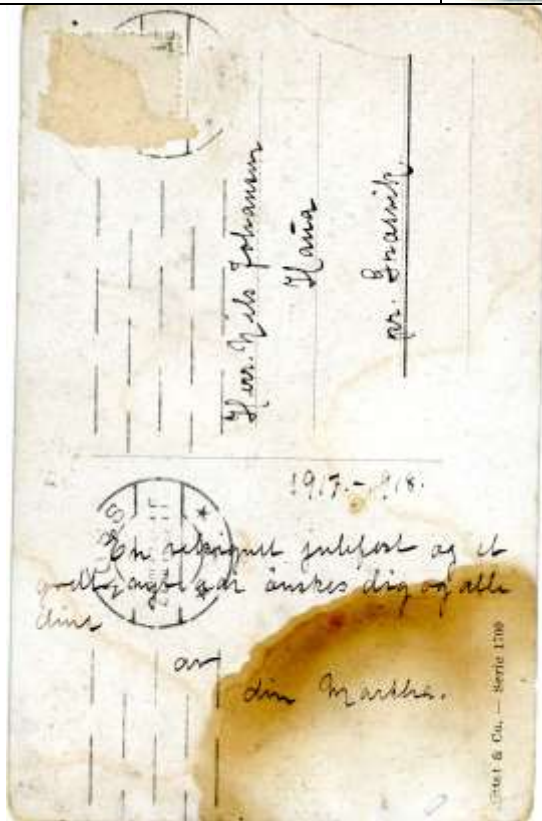 Herr. Nils Johansen
Haua
pr. Græsvik.
1917.-1918.
En velsignet julefest og et
godt nyt aar ønskes dig og alle
dine
av
din Martha.
Mittet & Co. — Serie 1709